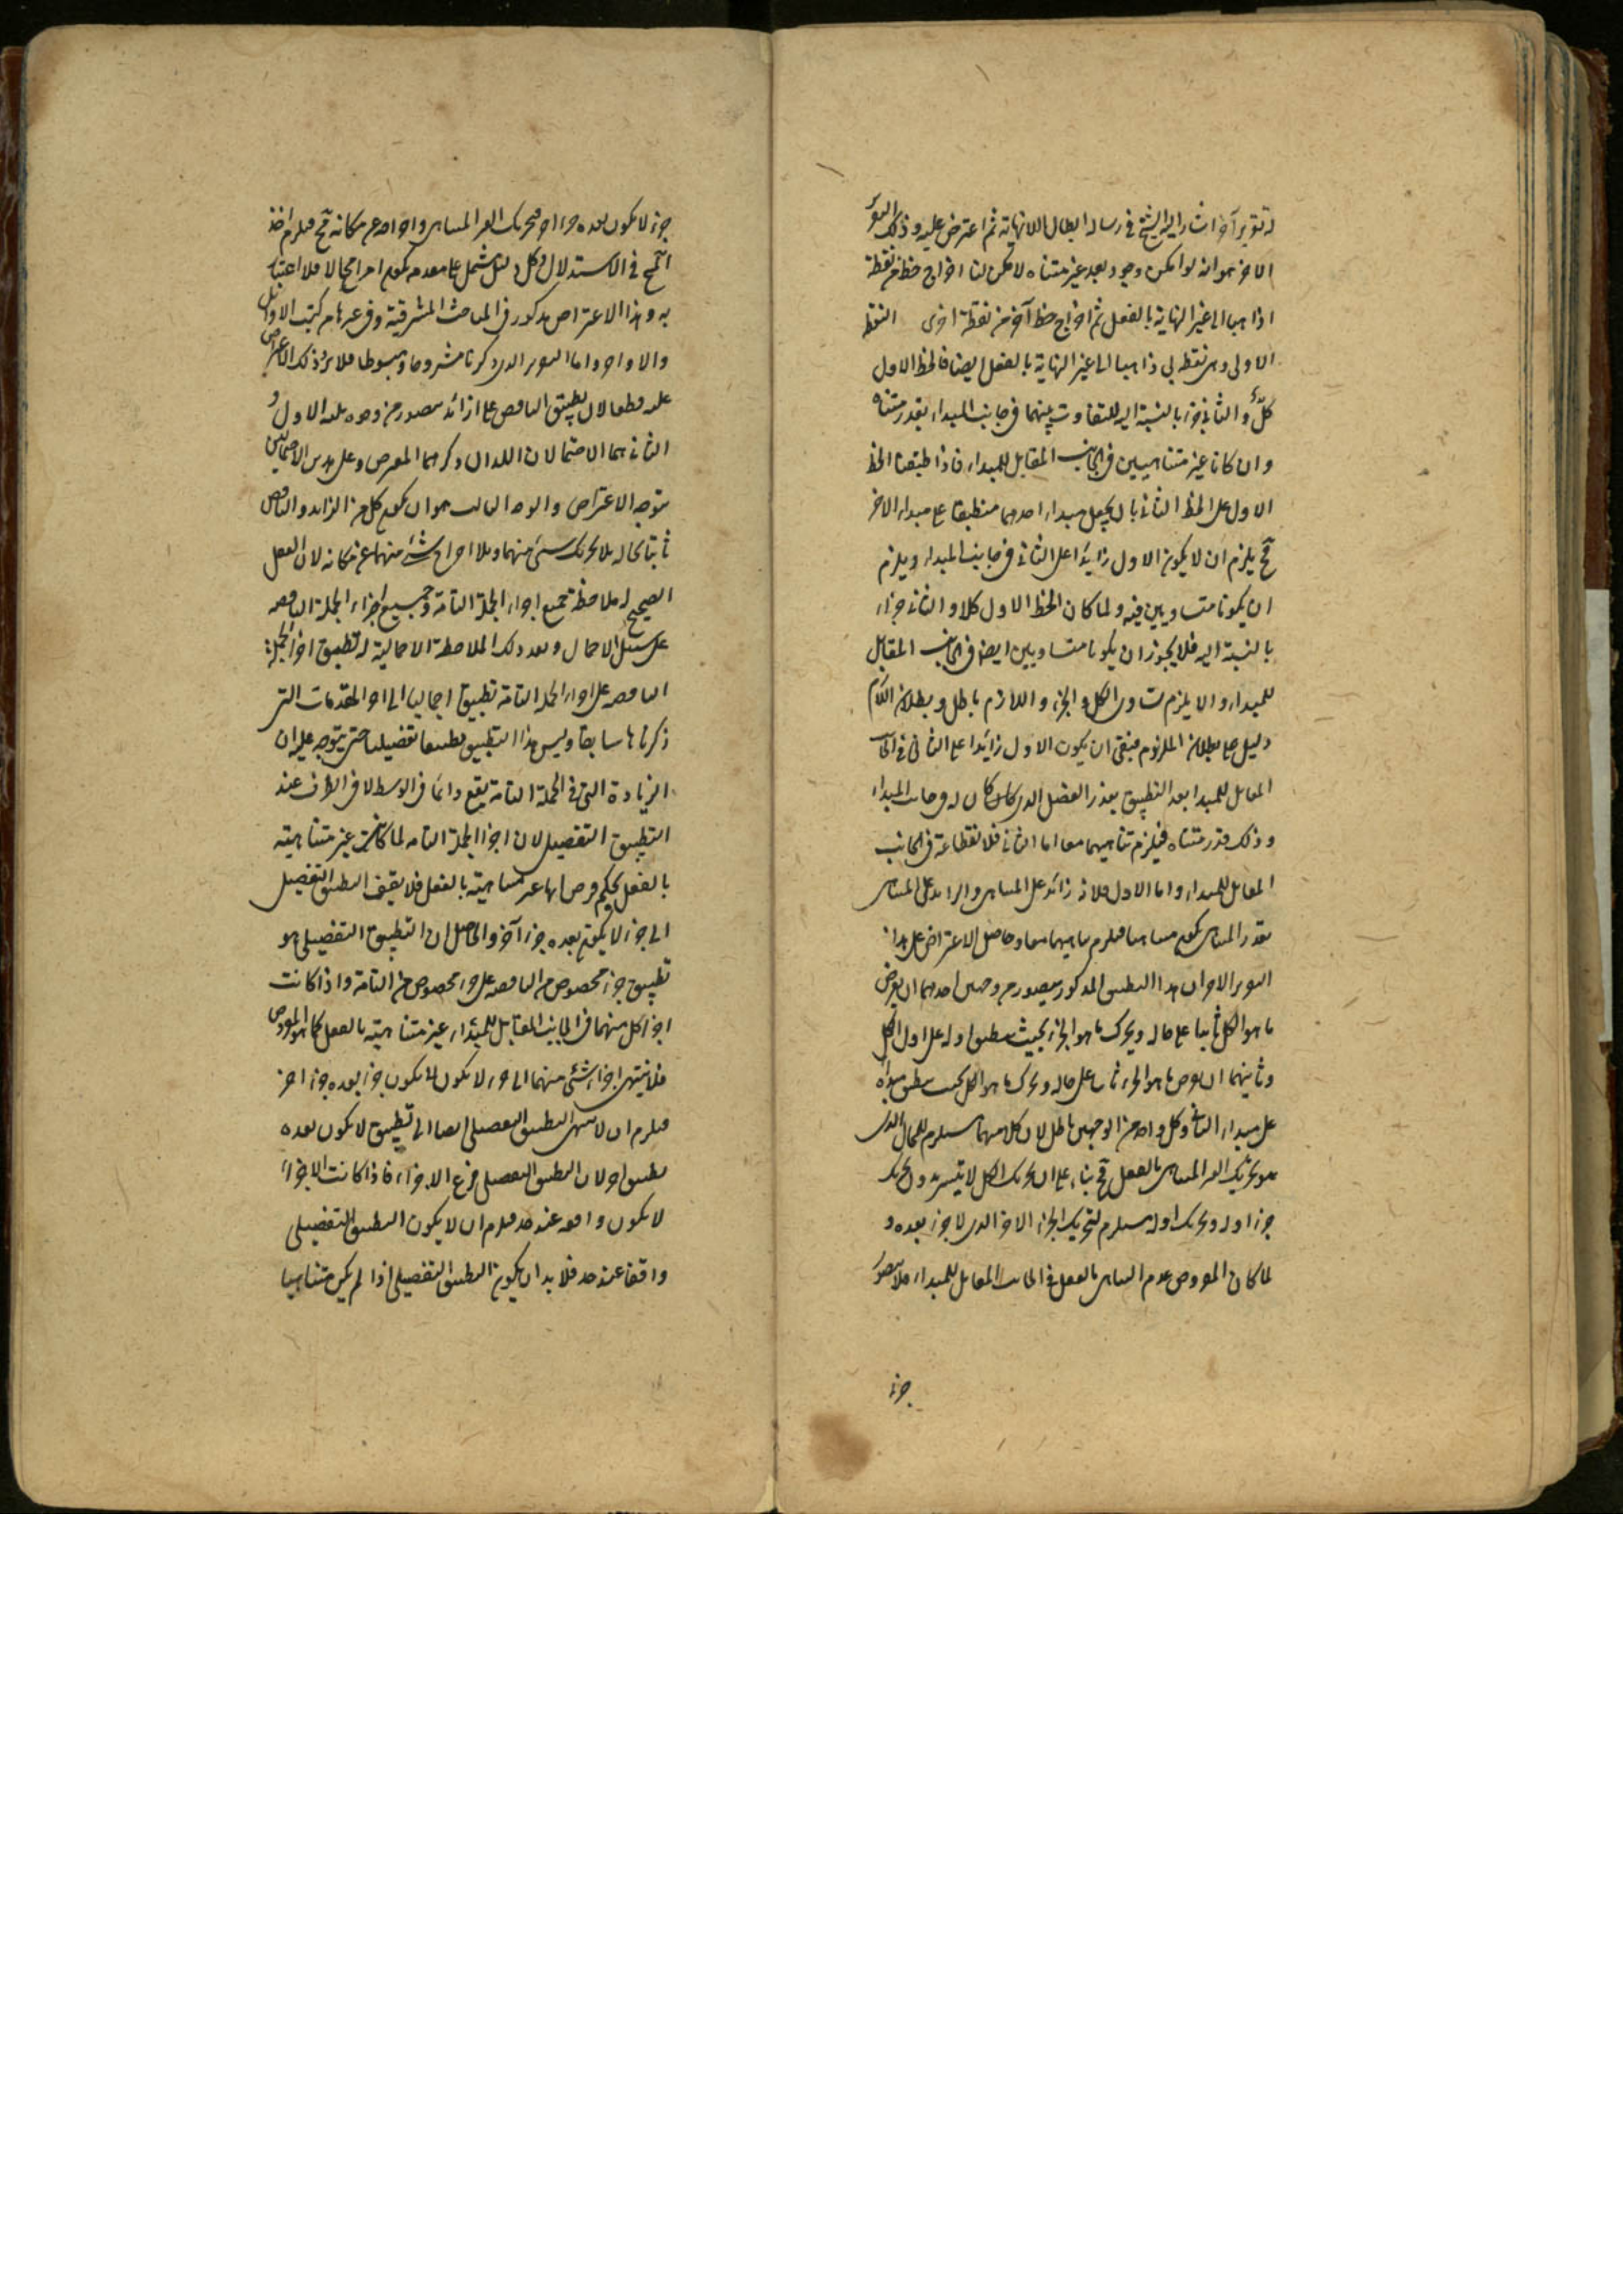 له تقرير آخر اشار اليه الشيخ في رسالة ابطال اللانهاية ثم اعترض عليه وذلك التقرير
الاخر هو انه لو امكن وجود بعد غير متناه لامكن لنا اخراج خط من نقطة
ذاهبا الى غير النهاية بالفعل ثم اخراج خط آخر من نقطة اخرى النقطة
الاولى وهي نقطة ب ذاهبا الى غير النهاية بالفعل ايضا فالخط الاول
كل والثاني جزء بالنسبة اليه للتفاوت بينهما في جانب المبداء بقدر متناه
وان كانا غير متناهيين في الجانب المقابل للمبداء فاذا طبقنا الخط
الاول على الخط الثاني بان يجعل مبداء احدهما منطبقا على مبداء الاخر
فح يلزم ان لا يكون الاول زايدا على الثاني في جانب المبداء ويلزم
ان يكونا متساويين فيه ولما كان الخط الاول كلا والثاني جزءا
بالنسبة اليه فلا يجوز ان يكونا متساويين ايضا في الجانب المقابل
للمبداء والا يلزم تساوي الكل والجزء واللازم باطل وبطلان اللازم
دليل على بطلان الملزوم فبقى ان يكون الاول زايدا على الثاني في الجانب
المقابل للمبدا بعد التطبيق بقدر الفضل الذي كان له في جانب المبداء
وذلك قدر متناه فيلزم تناهيهما معا اما الثاني فلانقطاعه في الجانب
المقابل للمبداء واما الاول فلانه زائد على المتناهي والزايد على المتناهي
بقدر المتناهي يكون متناهيا فيلزم تناهيهما معا وحاصل الاعتراض على هذا
التقرير الاخر ان هذا التطبيق المذكور يتصور من وجهين احدهما ان يفرض
ما هو الكل ثابتا على حاله ويحرك ما هو الجزء بحيث ينطبق اوله على اول الكل
وثانيهما ان يفرض ما هو الجزء ثابتا على حاله ويحرك ما هو الكل بحيث ينطبق مبدأه
على مبداء الثاني وكل واحد من الوجهين باطل لان كلا منهما مستلزم للمحال الذي
هو تحريك الغير المتناهي بالفعل فح بناء على ان تحريك الكل لا يتيسر بدون تحريك
جزء اوله وتحريك اوله مستلزم لتحريك الجزء الاخر الذي لا جزء بعده و
لما كان المفروض عدم التناهي بالفعل في الجانب المقابل للمبداء فلا يتصور
جزء
جزء لا يكون بعده جزء آخر فتحريك الغير المتناهي واخراجه عن مكانه فح فيلزم اخذ
المح في الاستدلال وكل دليل يشمل على مقدمة يكون امرا محالا فلا اعتبار
به وهذا الاعتراض مذكور في المباحث المشرقية وفي غيرها من كتب الاوائل
والاواخر واما التقرير الذي ذكرنا مشروحا ومبسوطا فلا يرد ذلك الاعتراض
عليه قطعا لان تطبيق الناقص على الزائد يتصور من وجوه ثلثة الاول و
الثاني هما الاحتمالان اللذان ذكرهما المعترض وعلى هذين الاحتمالين
يتوجه الاعتراض والوجه الثالث هو ان يكون كل من الزائد والناقص
ثابتا بحاله بلا تحريك شئ منهما وبلا اخراج شئ منهما عن مكانه لان العقل
الصحيح له ملاحظة جميع اجزاء الجملة التامة وجميع اجزاء الجملة الناقصة
على سبيل الاجمال وبعد ذلك الملاحظة الاجمالية له تطبيق اجزاء الجملة
الناقصة على اجزاء الجملة التامة تطبيقا اجماليا الى اخر المقدمات التي
ذكرناها سابقا وليس هذا التطبيق تطبيقا تفصيليا حتى يتوجه عليه ان
الزيادة التي في الجملة التامة يقع دائما في الوسط لا في الطرف عند
التطبيق التفصيلي لان اجزاء الجملة التامة لما كانت غير متناهية
بالفعل بحكم فرضها غير متناهية بالفعل فلا يقف التطبيق التفصيلي
الى جزء لا يكون بعده جزء آخر والحاصل ان التطبيق التفصيلي هو
تطبيق جزء مخصوص من الناقصة على جزء مخصوص من التامة واذا كانت
اجزاء كل منهما في الجانب المقابل للمبداء غير متناهية بالفعل كما هو المفروض
فلا ينتهي اجزاء شئ منهما الى جزء لا يكون بعده جزء اخر
فيلزم ان لا ينتهي التطبيق التفصيلي ايضا الى تطبيق لا يكون بعده
تطبيق اخر لان التطبيق التفصيلي فرع الاجزاء فاذا كانت الاجزاء
لا يكون واقفة عند حد فيلزم ان لا يكون التطبيق التفصيلي
واقفا عند حد فلا بد ان يكون التطبيق التفصيلي اذا لم يكن متناهيا